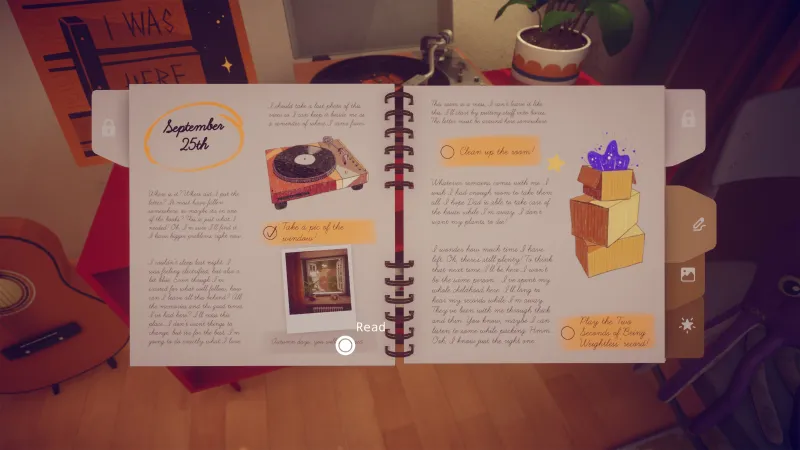 I WAS
HERE
September
25th
Where is it? Where did I put the
letter? It must have fallen
somewhere or maybe it's in one
of the books? This is just what I
needed! Ok. I'm sure I'll find it.
I have bigger problems right now.
I couldn't sleep last night. I
was feeling electrified, but also a
bit blue. Even though I'm
excited for what will follow, how
can I leave all this behind? All
the memories and the good times
I've had here? I'll miss this
place. I don't want things to
change, but it's for the best. I'm
going to do exactly what I love.
I should take a last photo of this
view so I can keep it near me as
a reminder of where I came from.
Take a pic of the
window!
Autumn days, you will
Read
This room is a mess. I can't leave it like
this. I'll start by putting stuff into boxes.
The letter must be around here somewhere.
Clean up the room!
Whatever remains comes with me. I
wish I had enough room to take them
all. I hope Dad is able to take care of
the house while I'm away. I don't
want my plants to die!
I wonder how much time I have
left. Oh, there's still plenty! To think
that next time I'll be here I won't
be the same person... I've spent my
whole childhood here. I'll long to
hear my records while I'm away.
They've been with me through thick
and thin. You know, maybe I can
listen to some while packing. Hmm.
Ooh, I know just the right one.
Play the Two
Seconds of Being
Weightless record!